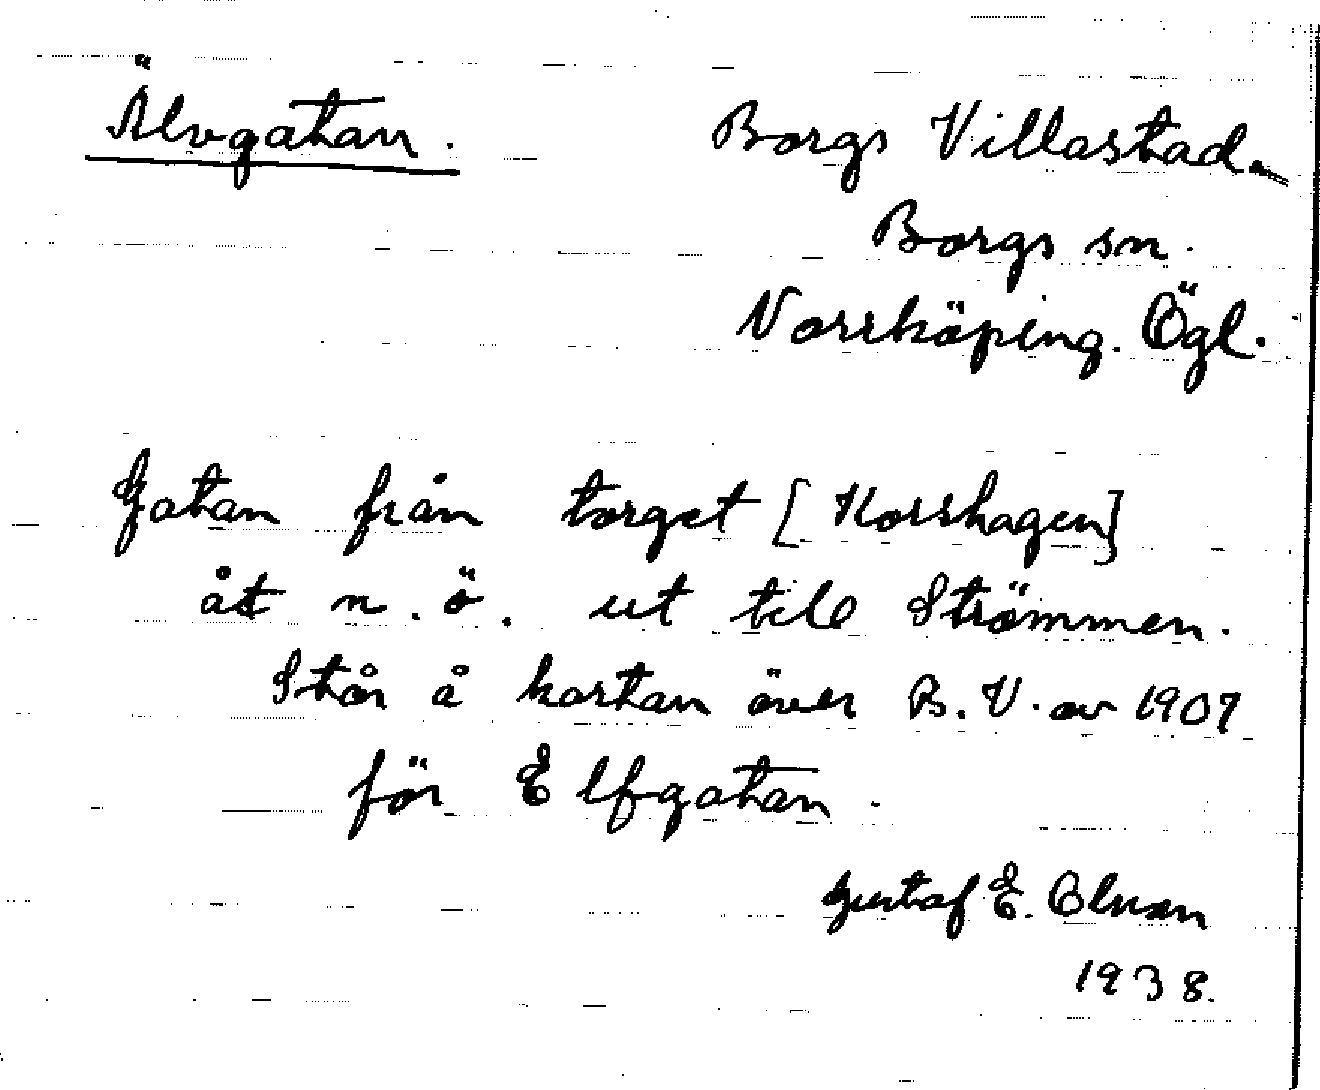 Älvgatan. Borgs Villastad.
Borgs sn.
Norrköping. Ögl.
Gatan från torget [Korshagen]
åt n. ö. ut till Strömmen.
Står å kartan över B. V. av 1907
för Elfgatan.
Gustaf E. Olsson
1938.